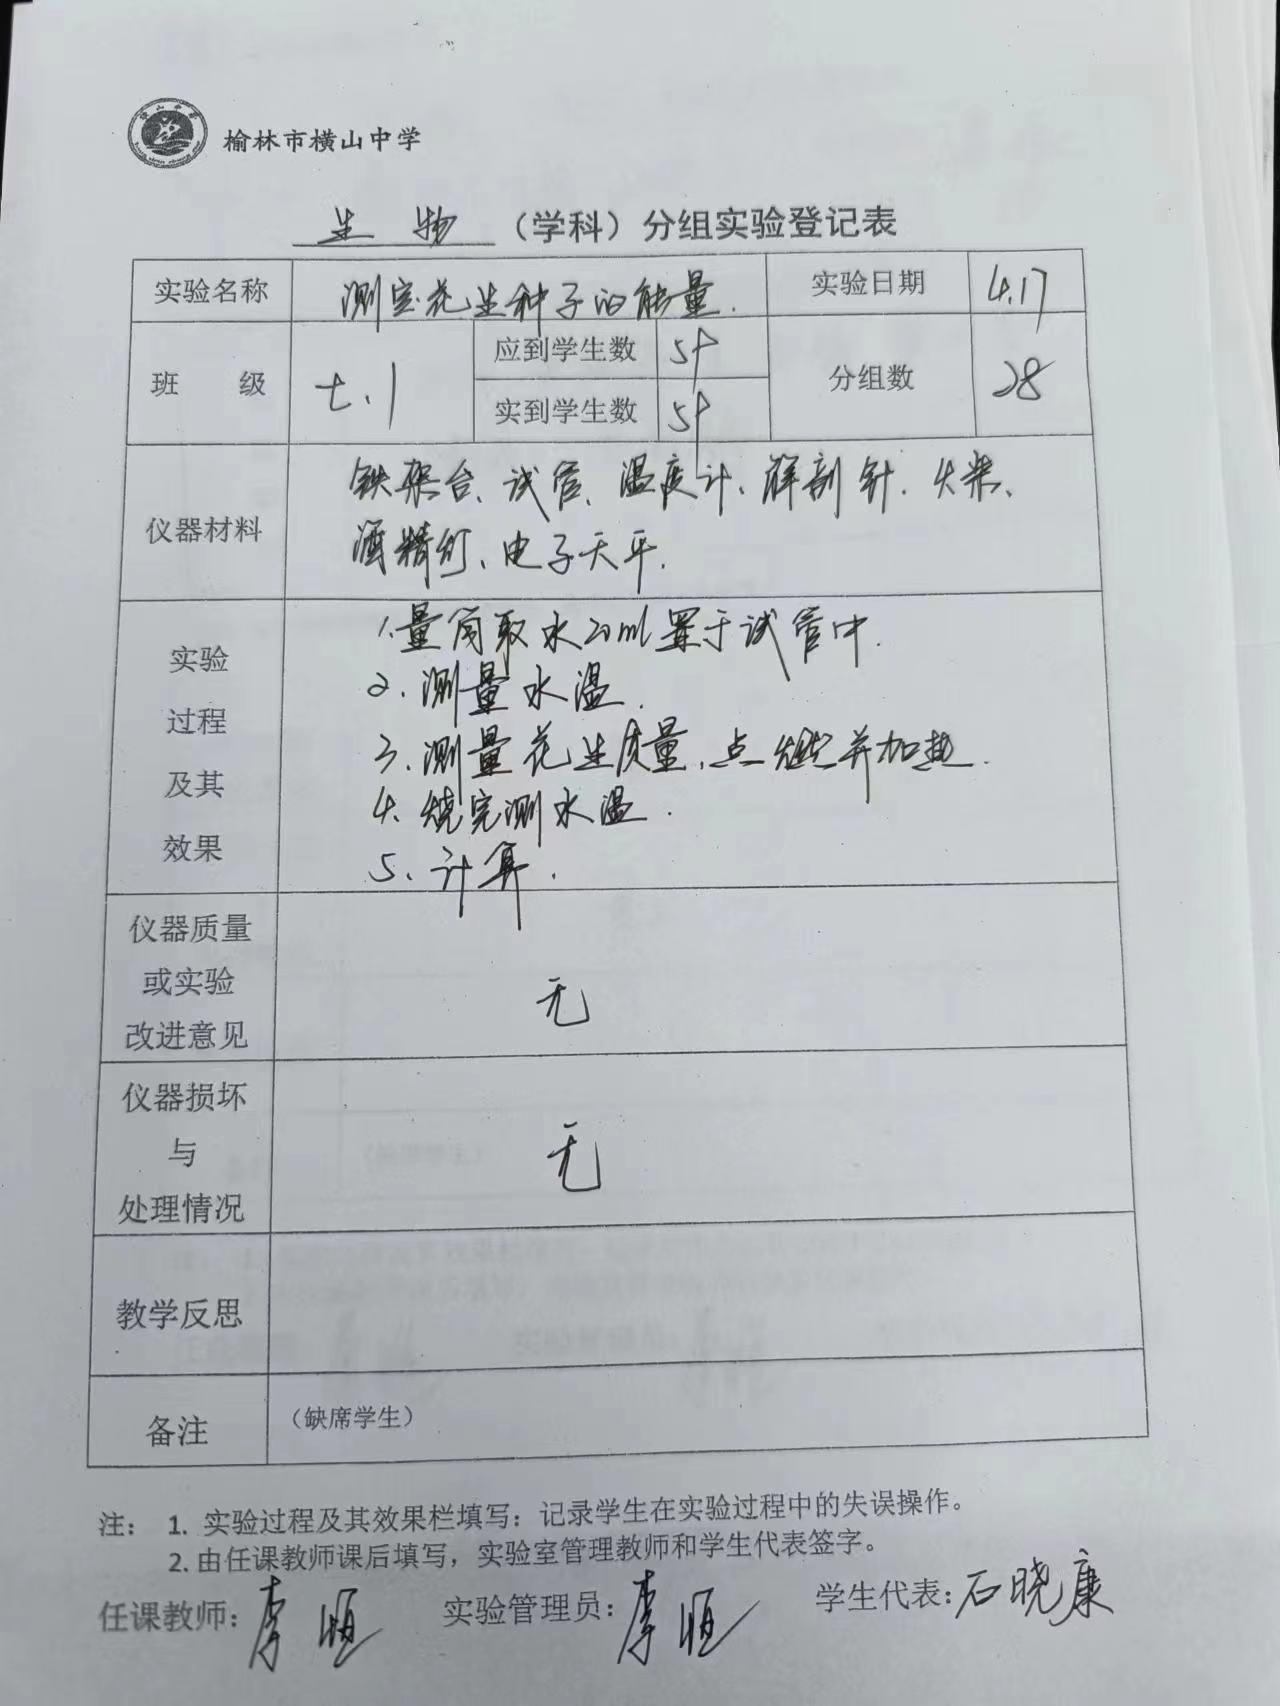 榆林市横山中学
生物（学科）分组实验登记表
实验名称 测定花生种子的能量. 实验日期 4.17
班 级 七.1 应到学生数 分组数 28
实到学生数
仪器材料 铁架台、试管、温度计、解剖针、火柴、
酒精灯、电子天平.
实验
过程
及其
效果
1.量筒取水20ml置于试管中.
2.测量水温.
3.测量花生质量,点燃并加热.
4.烧完测水温.
5、计算.
仪器质量
或实验
改进意见
无
仪器损坏
与
处理情况
无
教学反思
备注 （缺席学生）
注： 1. 实验过程及其效果栏填写：记录学生在实验过程中的失误操作。
2. 由任课教师课后填写，实验室管理教师和学生代表签字。
任课教师：李恒 实验管理员：李恒 学生代表：石晓康